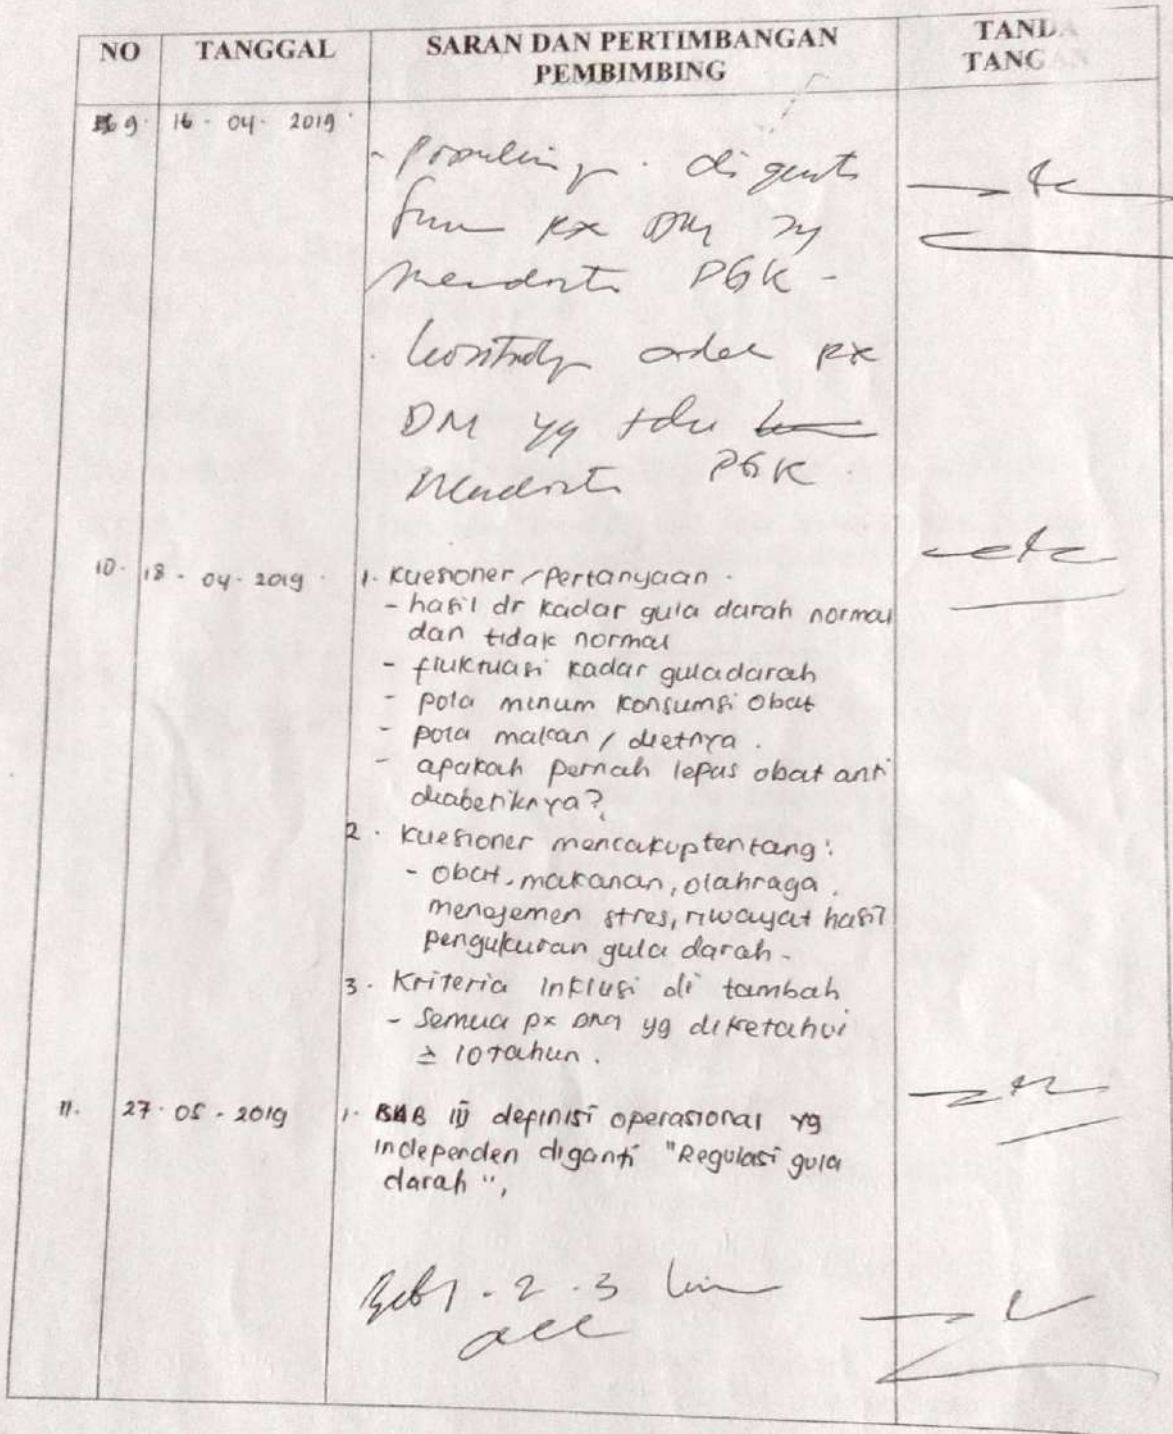 NO TANGGAL SARAN DAN PERTIMBANGAN PEMBIMBING TANDA TANGAN
9. 16 - 04 - 2019
- populasi diganti
px DM yg
menderita PGK -
. adalah px
DM yg tdk
menderita PGK.
10. 18 - 04 - 2019. 1. Kuesioner / Pertanyaan.
- hasil dr kadar gula darah normal
dan tidak normal
- fluktuasi kadar guladarah
- pola minum konsumsi obat
- pola makan / dietnya.
- apakah pernah lepas obat anti
diabetiknya?
2. Kuesioner mencakup tentang:
- obat, makanan, olahraga,
menejemen stres, riwayat hasil
pengukuran gula darah.
3. Kriteria inklusi di tambah
- Semua px DM yg diketahui
≥ 10 tahun.
11. 27 - 05 - 2019 1. BAB III definisi operasional yg
independen diganti "Regulasi gula
darah",
Bab 1 - 2 - 3
acc